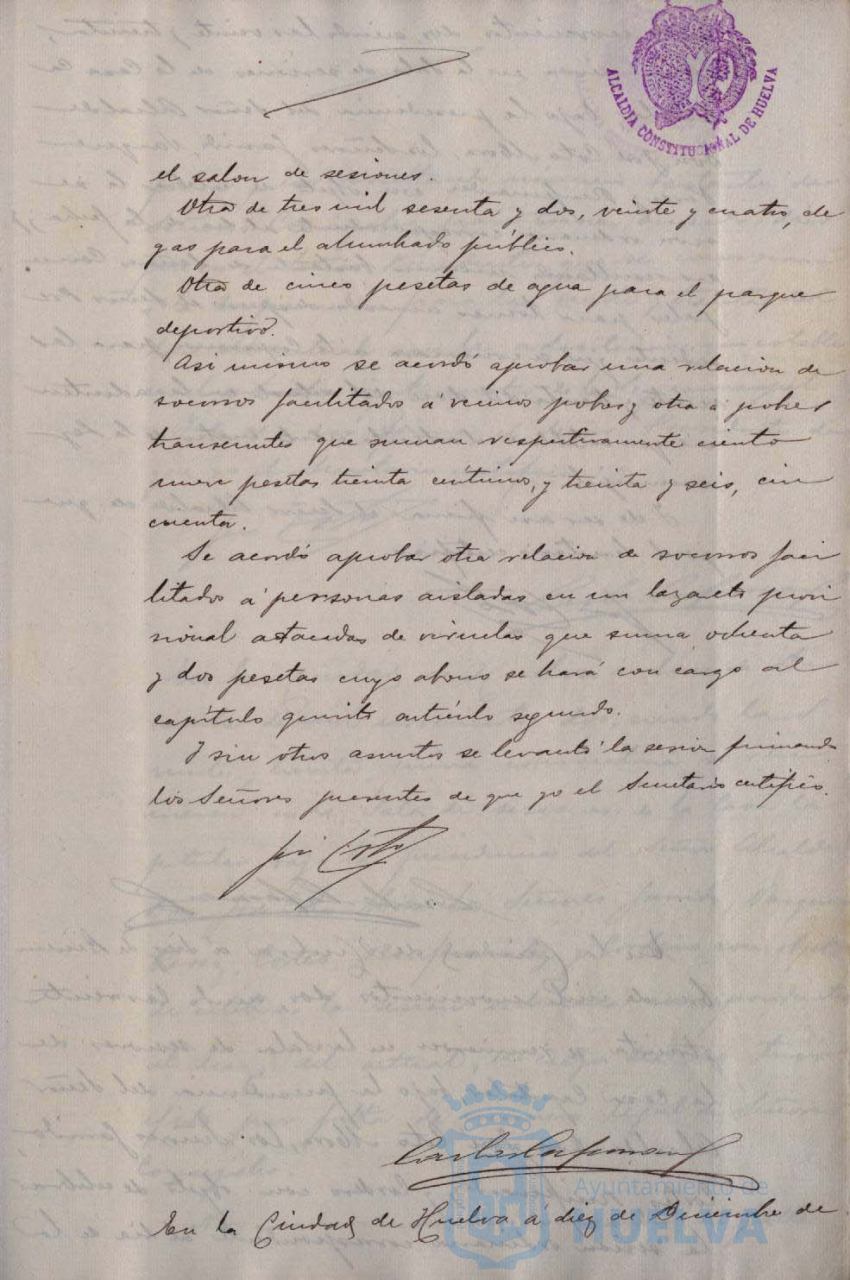 ALCALDIA CONSTITUCIONAL DE HUELVA
el salon de sesiones.
Otra de tres mil sesenta y dos, veinte y cuatro, de
gas para el alumbrado público.
Otra de cinco pesetas de agua para el parque
deportivo.
Asi mismo se acordó aprobar una relacion de
socorros facilitados á vecinos pobres y otra á pobres
transeuntes que suman respectivamente ciento
nueve pesetas treinta centimos, y treinta y seis, cin
cuenta.
Se acordó aprobar otra relacion de socorros faci
litados á personas aisladas en un lazareto provi
sional atacadas de viruelas que suma ochenta
y dos pesetas cuyo abono se hará con cargo al
capítulo quinto artículo segundo.
Y sin otros asuntos se levantó la sesion firmando
los Señores presentes de que yo el Secretario certifico.
Ayuntamiento de
HUELVA
En la Ciudad de Huelva á diez de Diciembre de